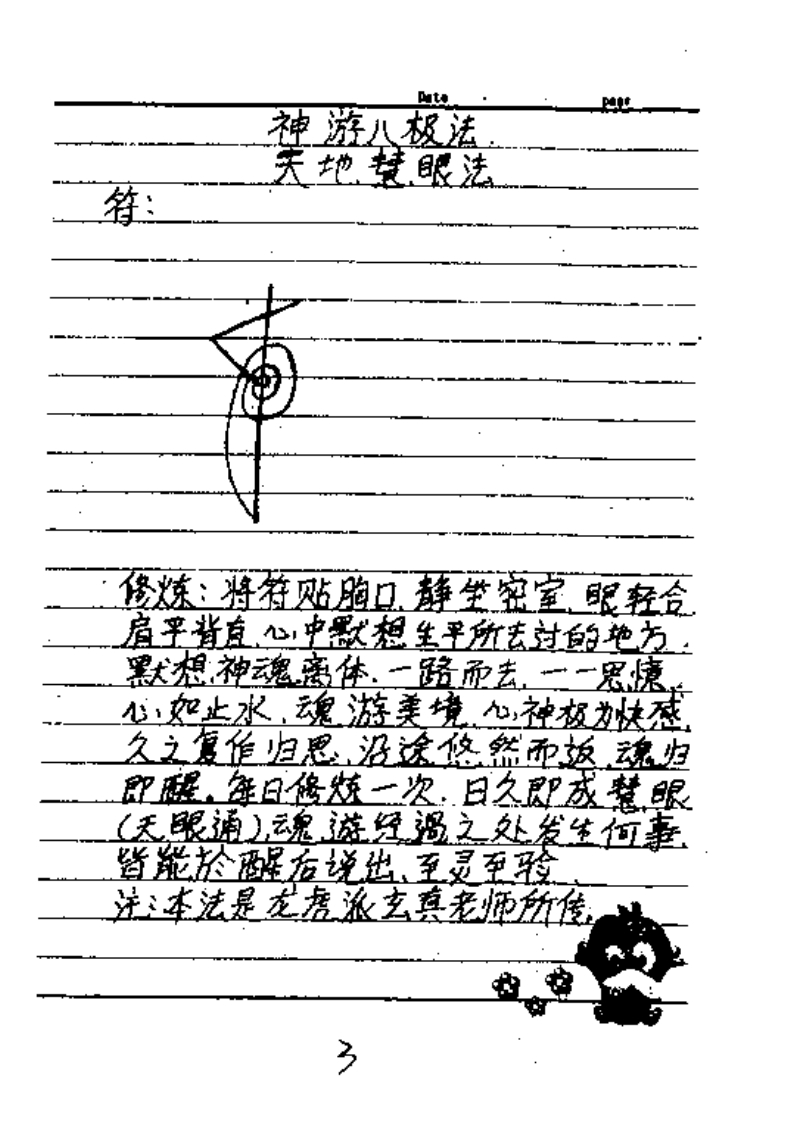 Date page
神游八极法.
天地慧眼法
符:
修炼:将符贴胸口.静坐密室.眼轻合.
肩平背直.心中默想生平所去过的地方.
默想神魂离体.一路而去.一一思忆.
心如止水.魂游美境.心神极为快感.
久之复作归思.沿途悠然而返.魂归
即醒.每日修炼一次.日久即成慧眼
(天眼通).魂游经過之处发生何事.
皆能於醒后说出.至灵至验.
注:本法是龙虎派玄真老师所传.
3